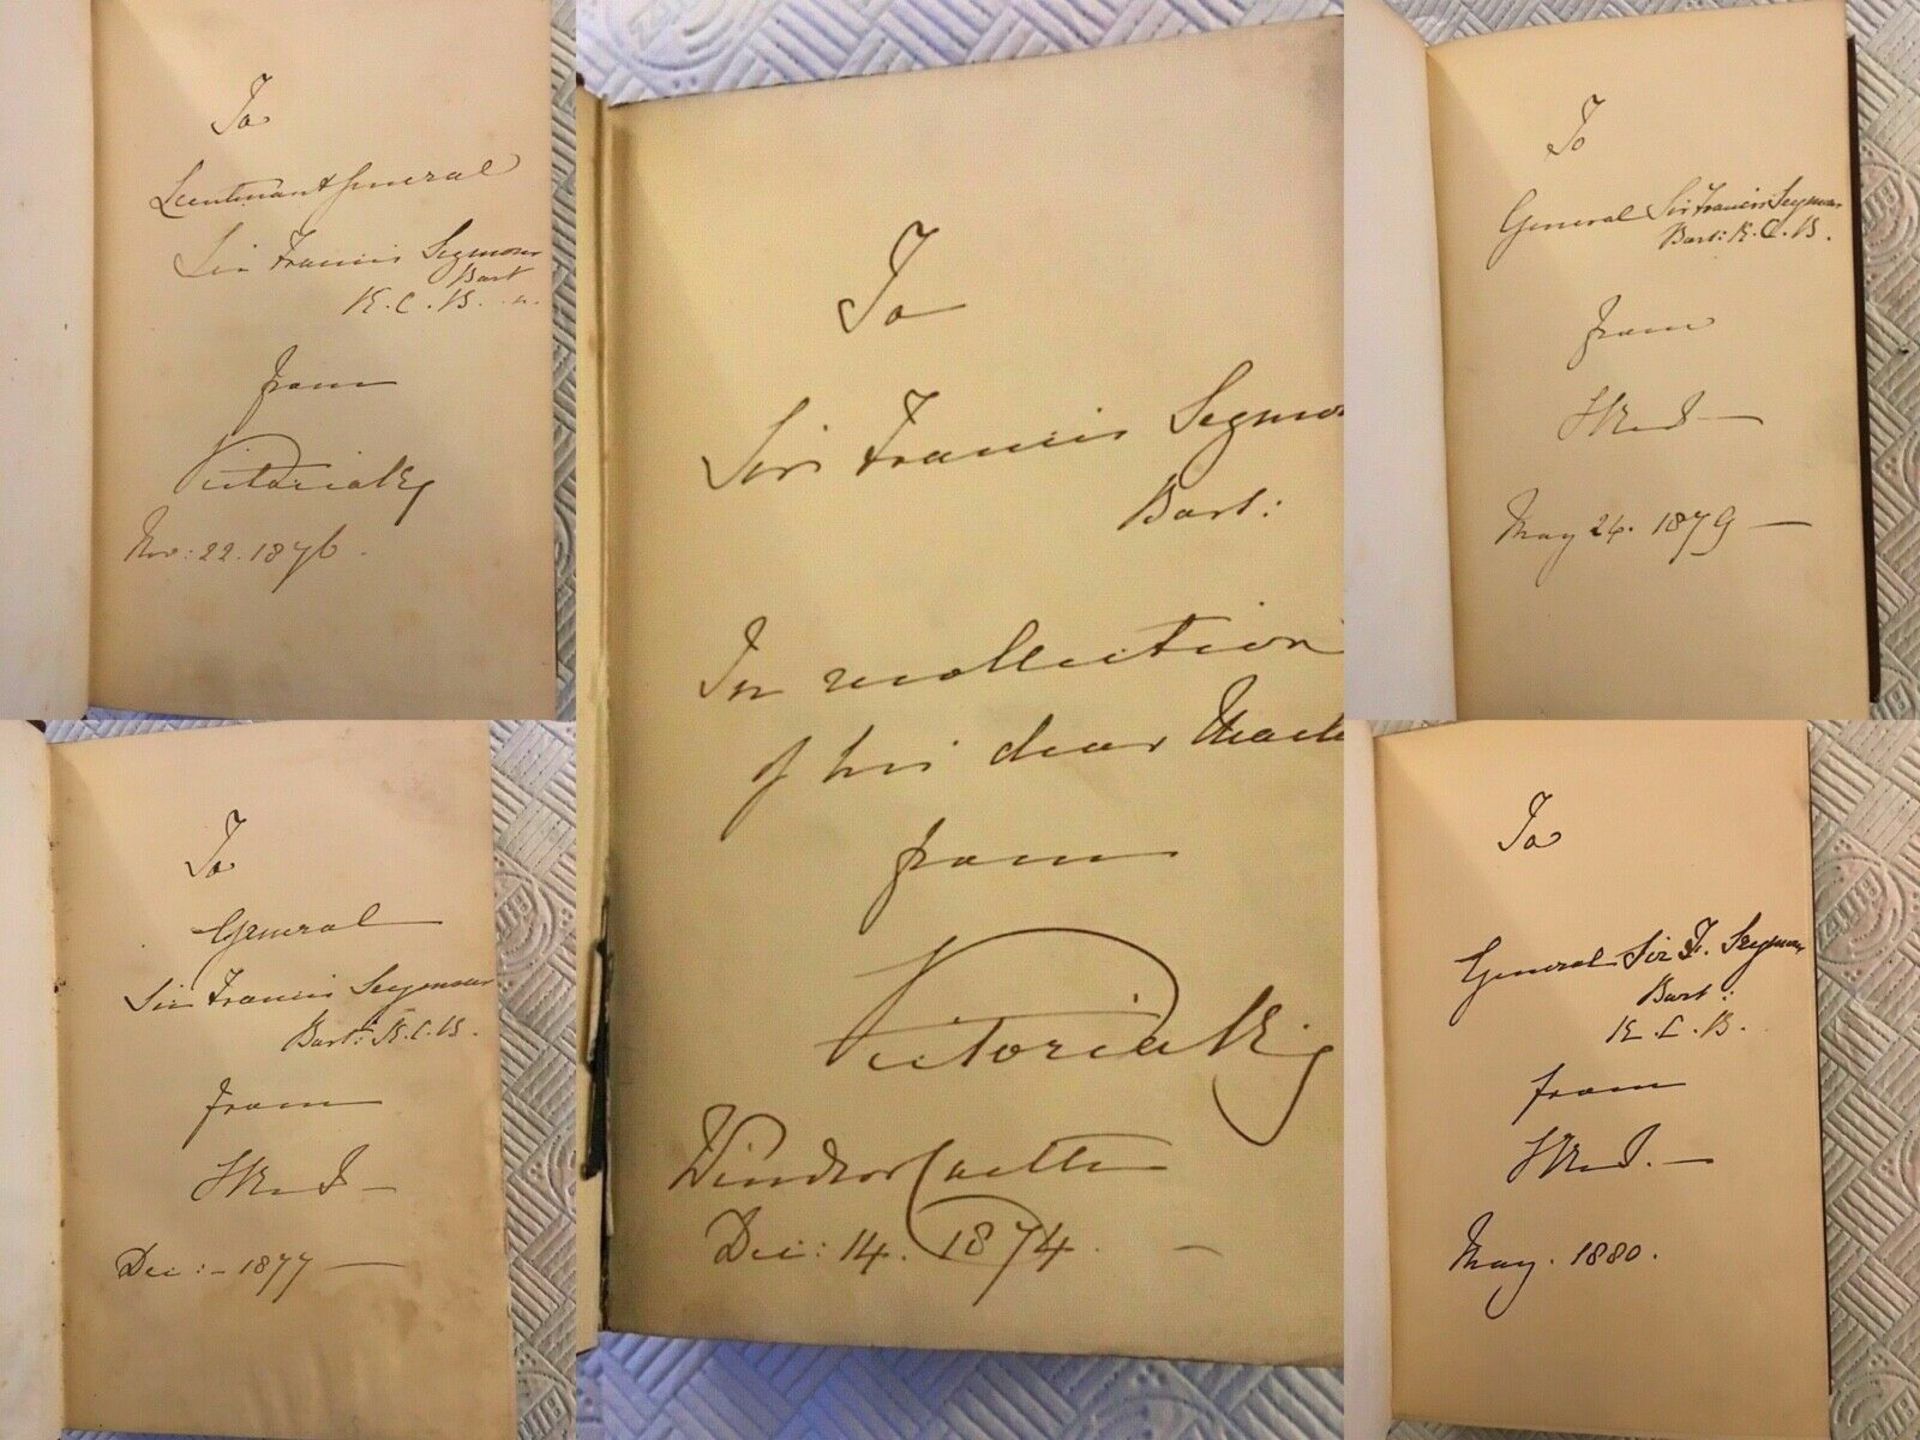 To
Lieutenant General
Sir Francis Seymour
Bart
K.C.B.
from
Victoria R g
Nov: 22. 1876.
To
General
Sir Francis Seymour
Bart: K.C.B.
from
Dec: - 1877 —
To
Sir Francis Seymou
Bart:
In recollection
of his dear
from
Victoria R g
Windsor Castle
Dec: 14. 1874. —
To
General Sir Francis Seymour
Bart: K.C.B.
from
May 24. 1879 —
To
General Sir F. Seymour
Bart:
K.C.B.
from
May. 1880.